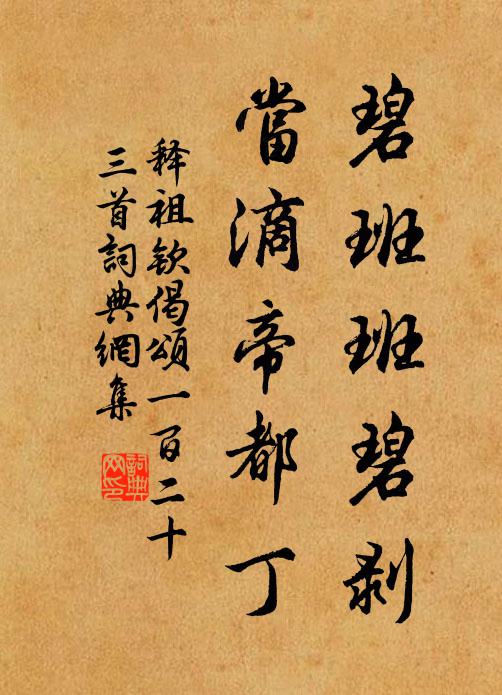 碧班班碧剥
當滴帝都丁
释祖欽偈頌一百二十
三首詞典網集
詞典网印